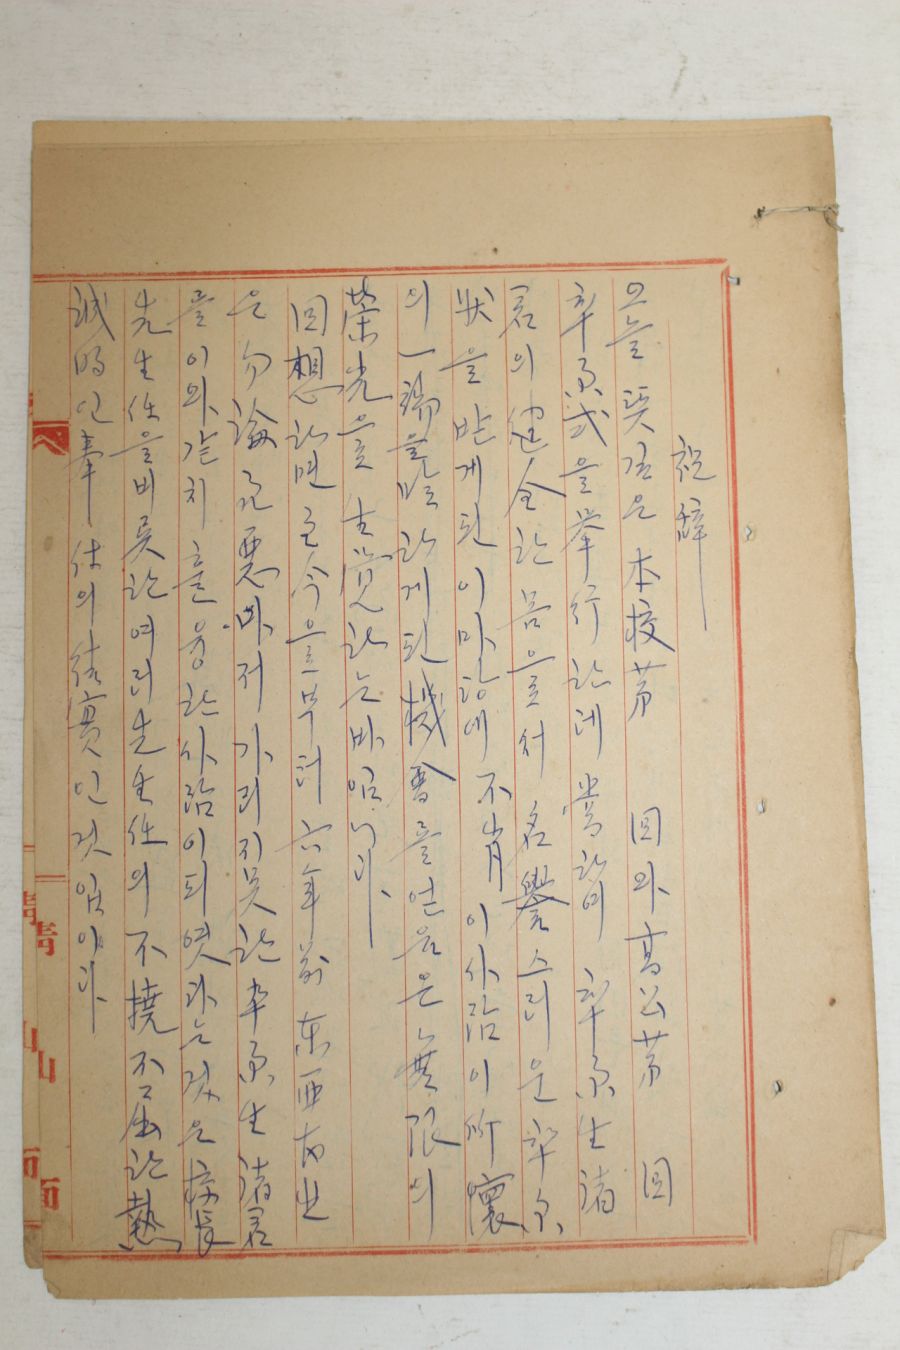 祝辞
오늘 뜻깊은 本校第 回와 高公第 回
卒業式을 擧行하는데 當하야 卒業生 諸
君의 健全한 몸으로서 名譽스러운 卒業
狀을 받게된 이마당에 不肖 이사람이 所懷
의 一端을 말하게된 機會를 얻음은 無限의
榮光으로 生覚하는바입니다
回想하면 至今으로부터 六年前 東西도
은 勿論 바저 가리지못한 卒業生 諸君
들이 와같치 훌융한사람이되엿다는것은 校長
先生任을비롯한 여러先生任의 不撓不屈한 熱
誠的인 奉仕의 結實인것입이다
面